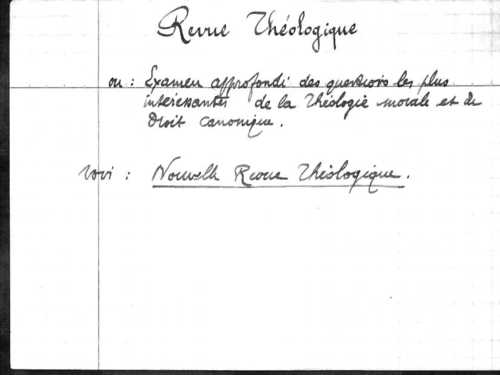 Revue Théologique
ou : Examen approfondi des questions les plus
intéressantes de la Théologie morale et de
Droit canonique.
Nouvelle Revue Théologique.